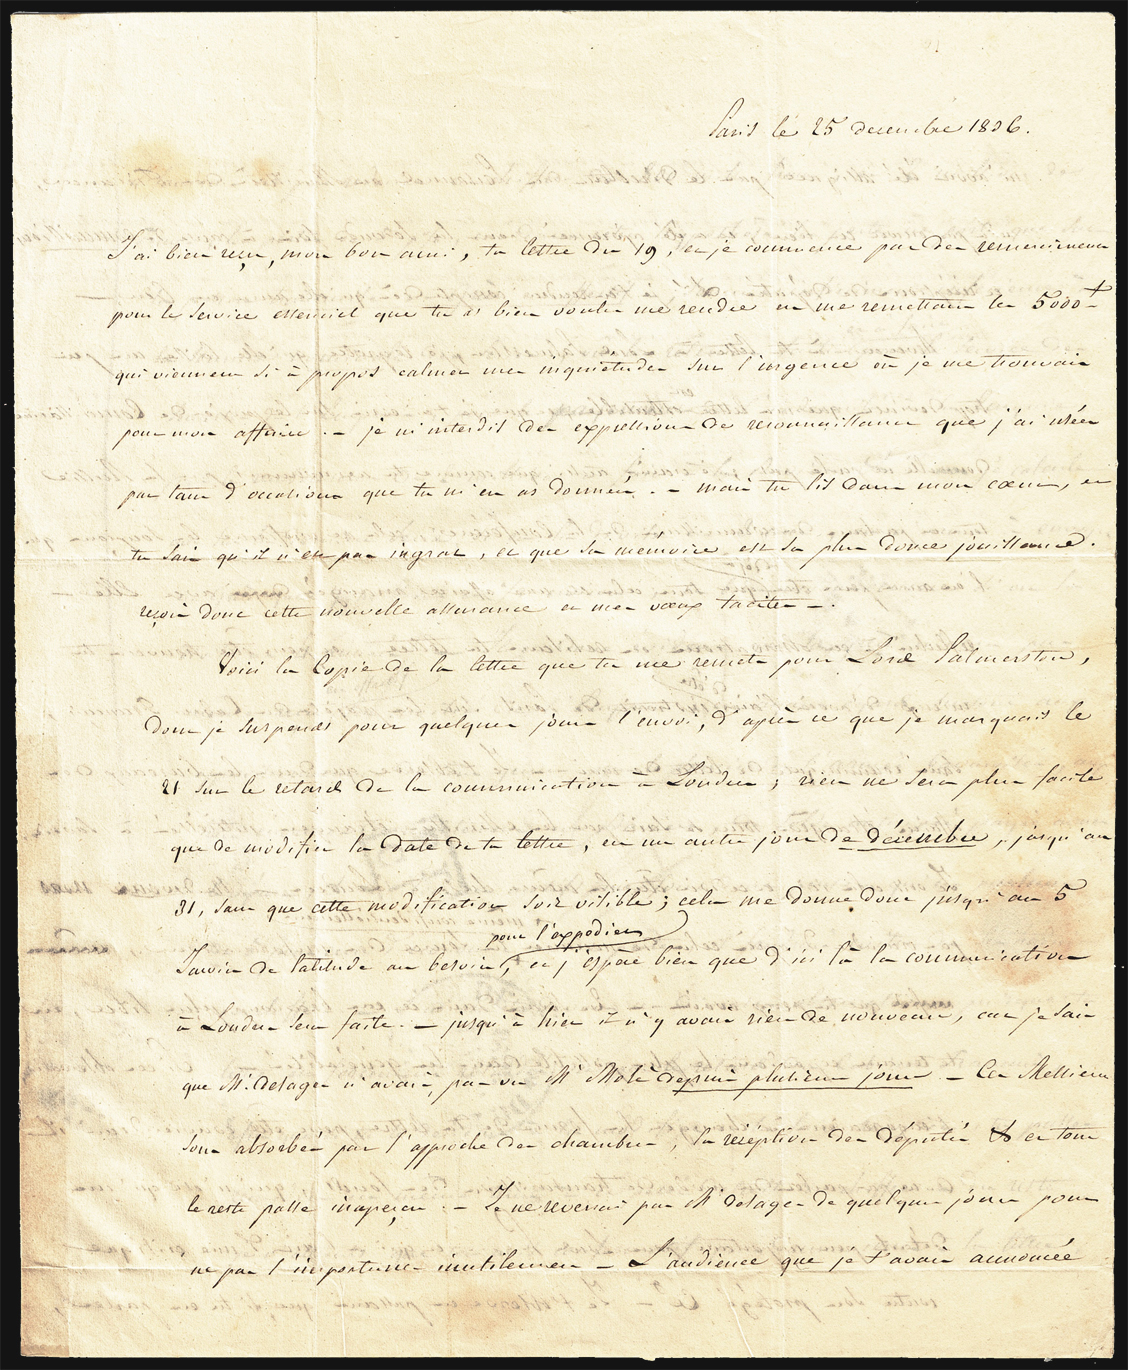 Paris le 25 decembre 1836.
J'ai bien reçu, mon bon ami, ta lettre du 19, et je commence par des remerciemens
pour le service essentiel que tu as bien voulu me rendre en me remettant les 5000#
qui viennent si à propos calmer mes inquiétudes sur l'urgence où je me trouvais
pour mon affaire. - je m'interdis des expressions de reconnaissance que j'ai usées
par tant d'occasions que tu m'en as données. - mais tu lis dans mon cœur, et
tu sais qu'il n'est pas ingrat, et que sa mémoire est sa plus douce jouissance.
reçois donc cette nouvelle assurance et mes vœux tacites -.
Voici la Copie de la lettre que tu me remets pour Lord Palmerston,
dont je suspends pour quelques jours l'envoi, d'après ce que je marquais le
21 sur le retard de la communication à Londres; rien ne sera plus facile
que de modifier la date de ta lettre, en un autre jour de décembre, jusqu'au
31, sans que cette modification soit visible; cela me donne donc jusqu'au 5
pour l'expédier
Janvier de latitude au besoin, et j'espère bien que d'ici là la communication
à Londres sera faite. - jusqu'à hier il n'y avait rien de nouveau, car je sais
que Mr. Delages n'avait pas vu Mr Molé depuis plusieurs jours. - Ces Messieurs
sont absorbés par l'approche des chambres, la réception des députés & et tout
le reste passe inaperçu. - Je ne reverrai pas Mr Delages de quelques jours pour
ne pas l'importuner inutilement - L'audience que je t'avais annoncée